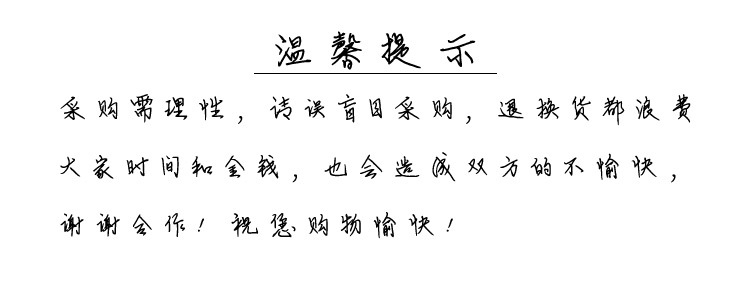 温馨提示
采购需理性，请误盲目采购，退换货都浪费
大家时间和金钱，也会造成双方的不愉快，
谢谢合作！祝您购物愉快！